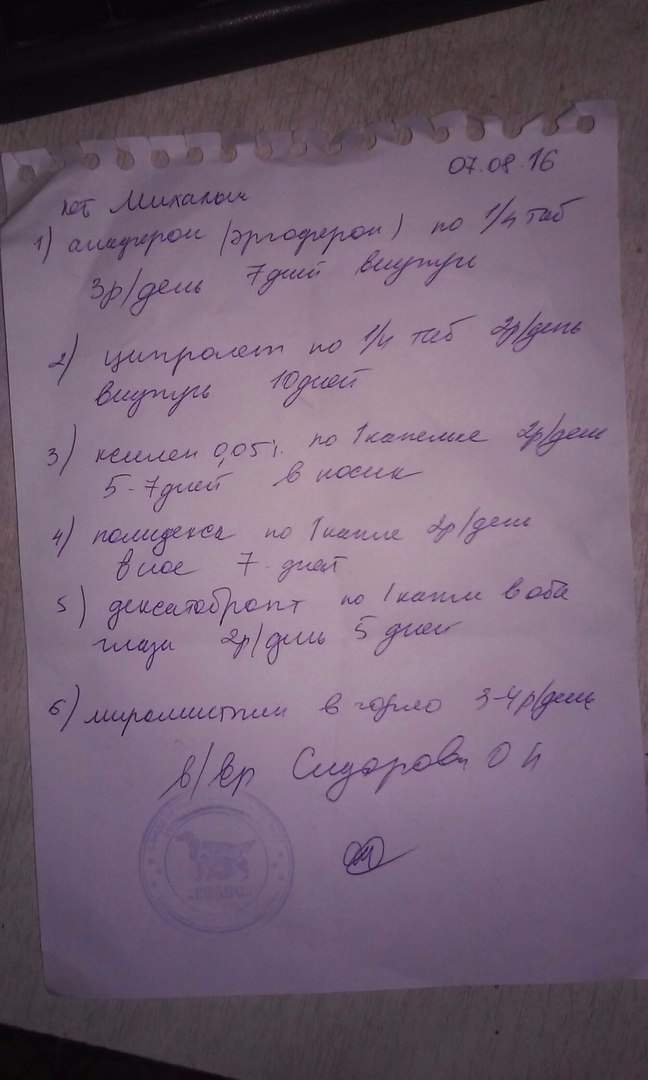 07.08.16
кот Михалыч
1) анаферон (эргоферон) по 1/4 таб
3р/день 7дней внутрь
2) ципролет по 1/4 таб 2р/день
внутрь 10дней
3) ксилен 0,05%. по 1капельке 2р/день
5-7дней в носик
4) полидекса по 1капле 2р/день
в нос 7-дней
5) дексатобропт по 1капле в оба
глаза 2р/день 5 дней
6) мирамистин в горло 3-4р/день
в/вр Сидорович О